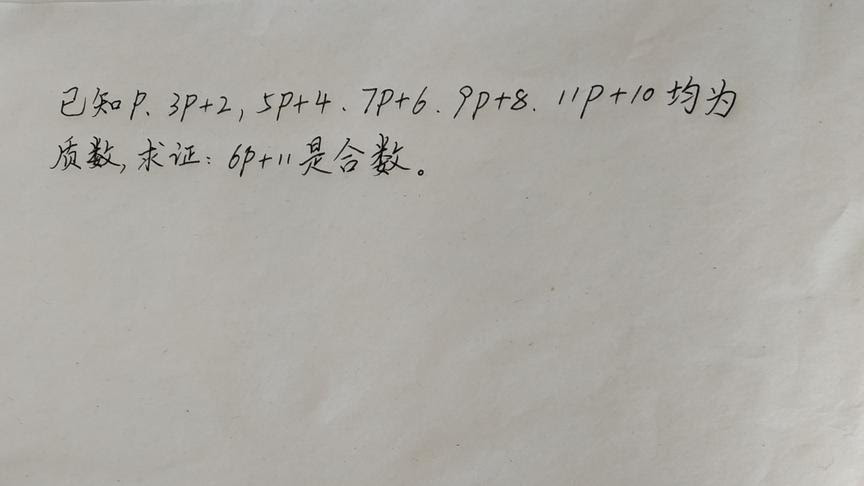 已知P、3P+2,5P+4、7P+6、9P+8、11P+10均为
质数,求证:6P+11是合数。